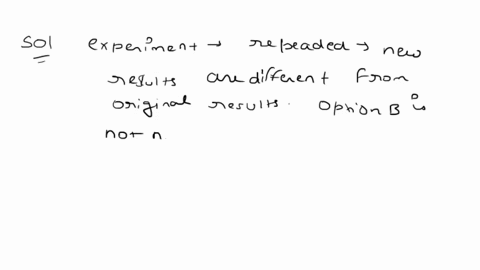 Sol experiment → repeaded → new
results are different from
original results. option B is
not n